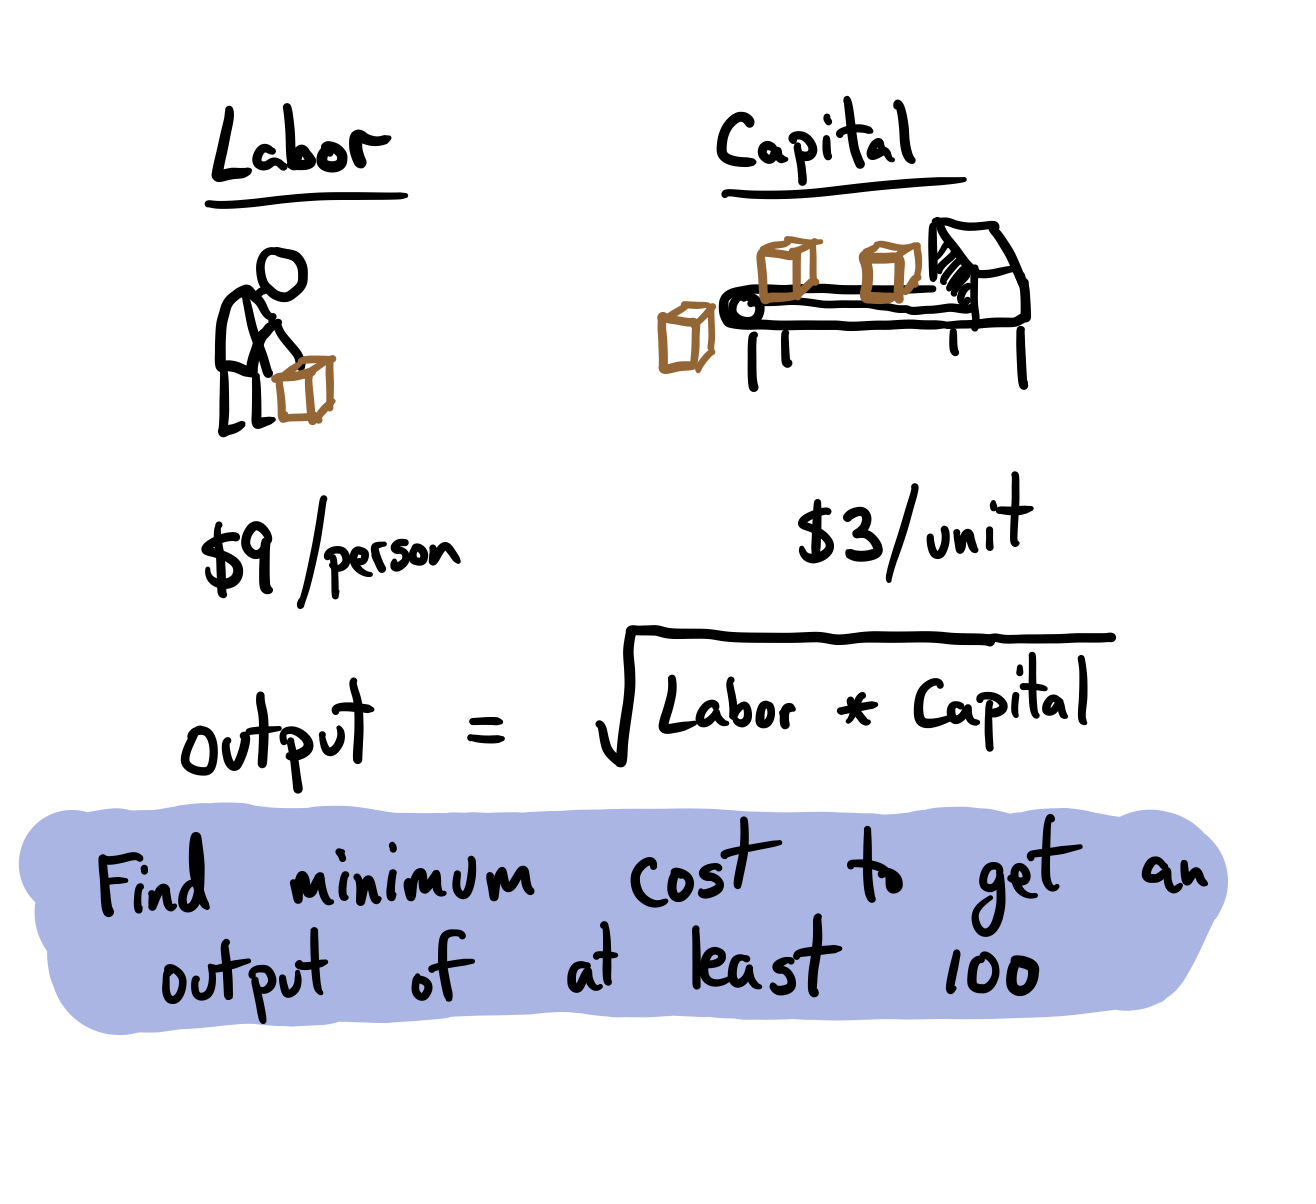 Labor
Capital
$9/person
$3/unit
output = √Labor * Capital
Find minimum cost to get an
output of at least 100